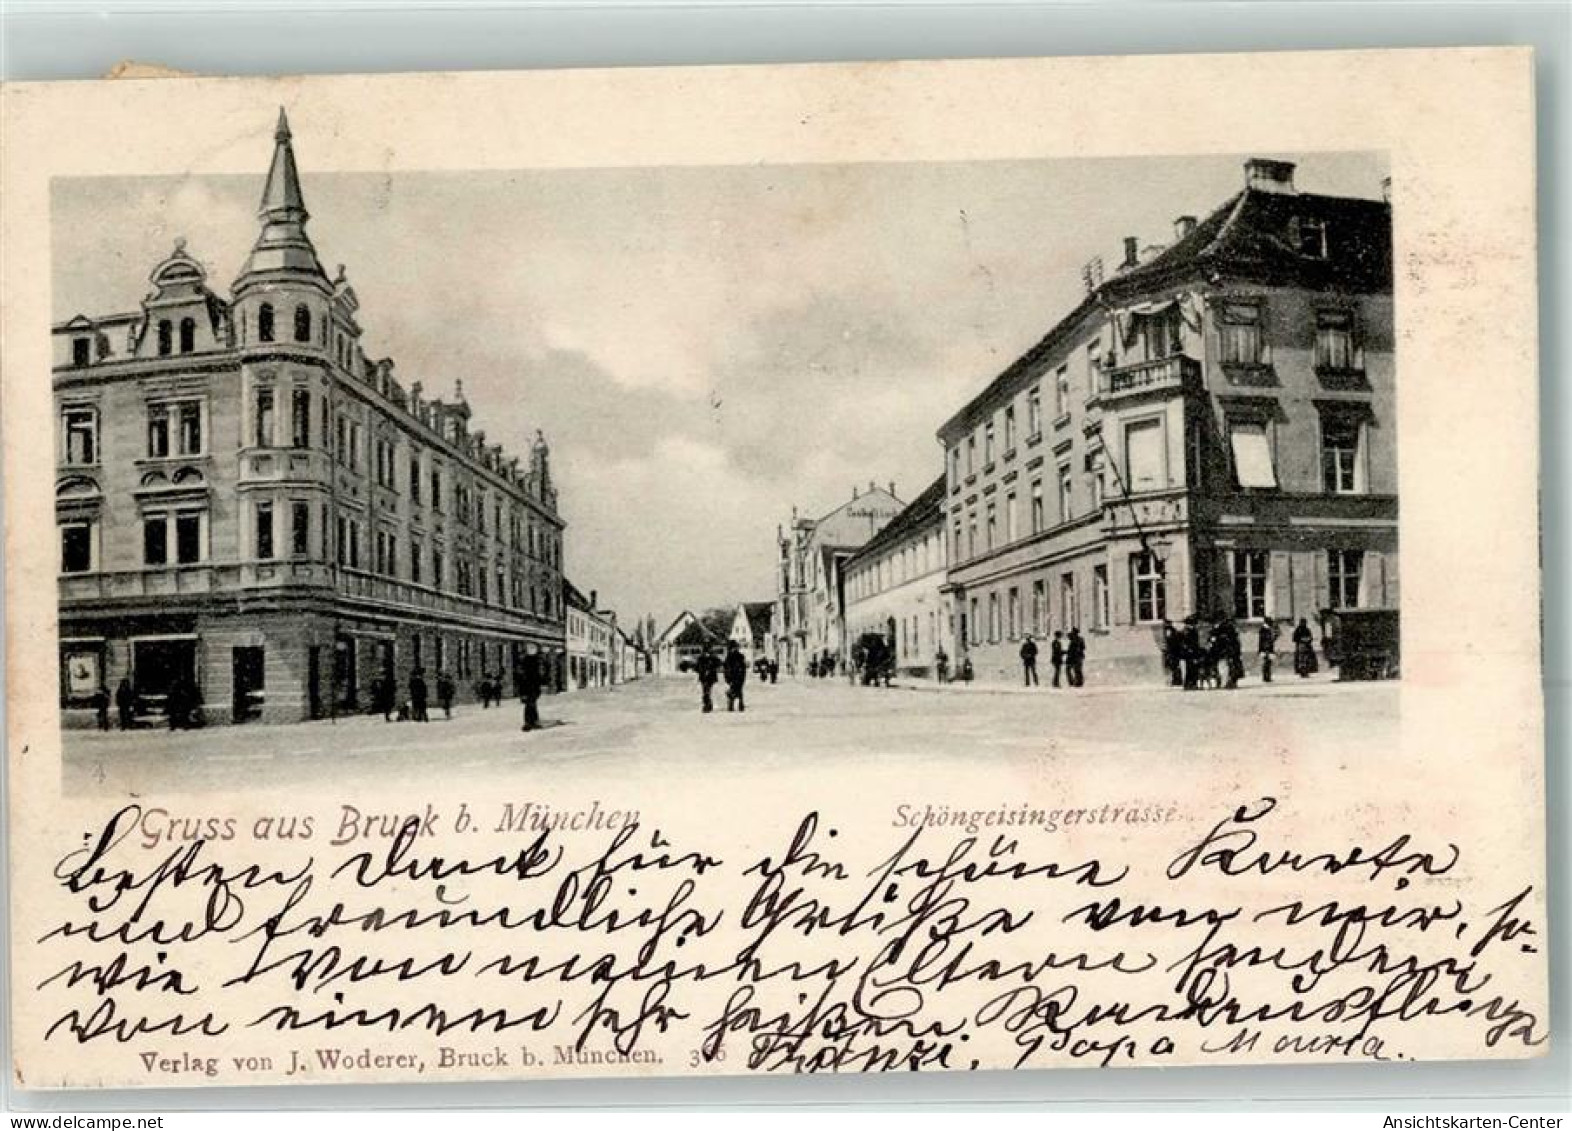 Gruss aus Bruck b. München
Schöngeisingerstrasse.
Besten Dank für die schöne Karte
und freundliche Grüße von mir, so-
wie von meinen Eltern senden
von einem sehr heißen Radausflug
Fränzi, Papa Mama.
Verlag von J. Woderer, Bruck b. München. 396
delcampe.net
Ansichtskarten-Center